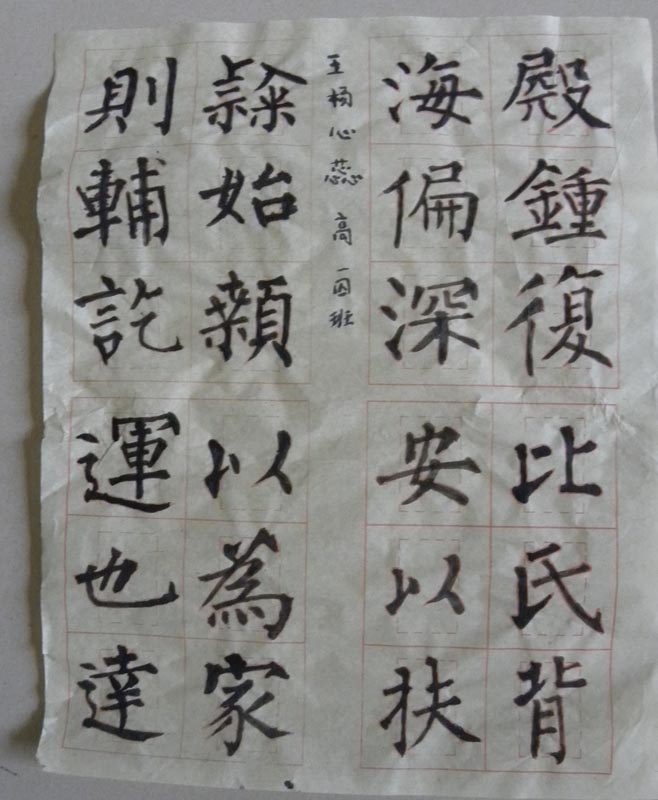 殿鍾復比氏背
海偏深安以扶
王杨心蕊 高一四班
始以為家
則輔訖運也達